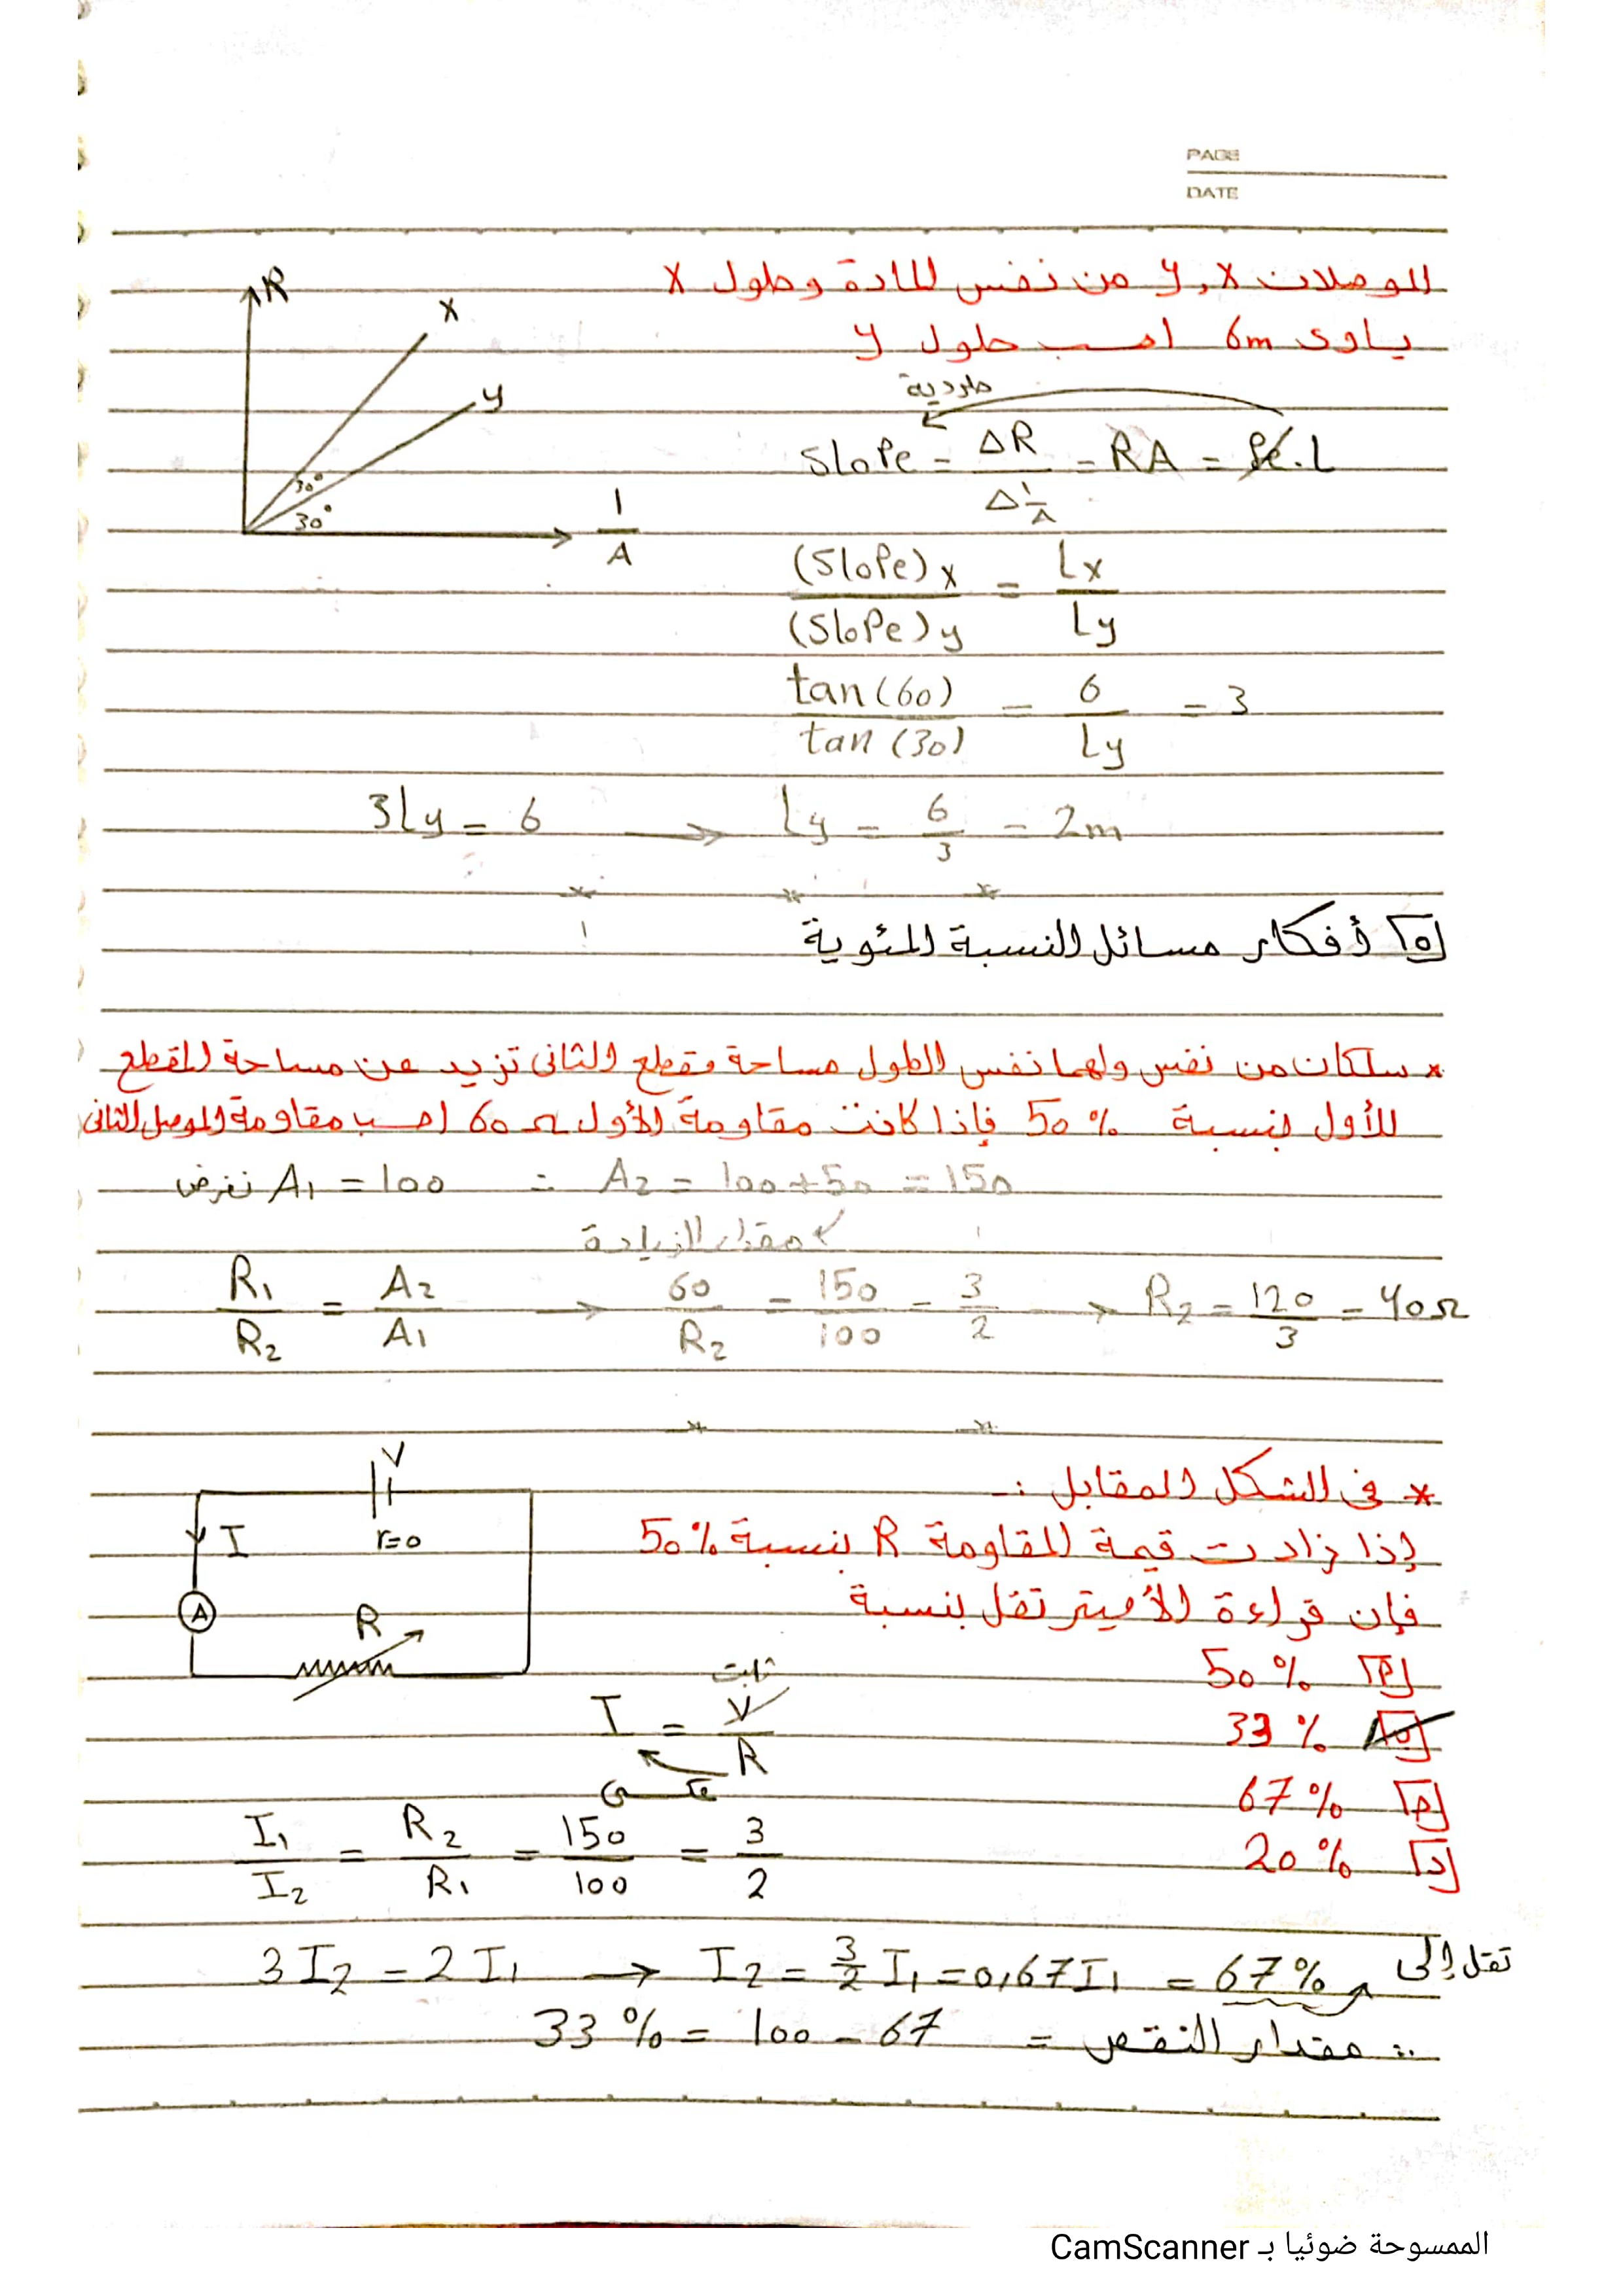 PAGE
DATE
الموصلان x, y من نفس المادة وطول x
يساوى 6m احسب طول y
R
x
y
30°
30°
1/A
طردية
Slope = ΔR / Δ 1/A = RA = ρe . L
(Slope)x / (Slope)y = Lx / Ly
tan(60) / tan(30) = 6 / Ly = 3
3Ly = 6 → Ly = 6/3 = 2m
[5] أفكار مسائل النسبة المئوية
* سلكان من نفس ولهما نفس الطول مساحة مقطع الثانى تزيد عن مساحة المقطع
للأول بنسبة 50 % فإذا كانت مقاومة الأول 60 Ω احسب مقاومة الموصل الثانى
نفرض A1 = 100 ∴ A2 = 100 + 50 = 150
مقدار الزيادة
R1 / R2 = A2 / A1 → 60 / R2 = 150 / 100 = 3 / 2 → R2 = 120 / 3 = 40 Ω
* فى الشكل المقابل :-
إذا زادت قيمة المقاومة R بنسبة 50%
فإن قراءة الأميتر تقل بنسبة
V
r=0
I
A
R
50 %
33 %
67 %
[د] 20 %
ثابت
I = V / R
عكسى
I1 / I2 = R2 / R1 = 150 / 100 = 3 / 2
3 I2 = 2 I1 → I2 = 3/2 I1 = 0,67 I1 = 67 % تقل إلى
∴ مقدار النقص = 100 - 67 = 33 %
الممسوحة ضوئيا بـ CamScanner